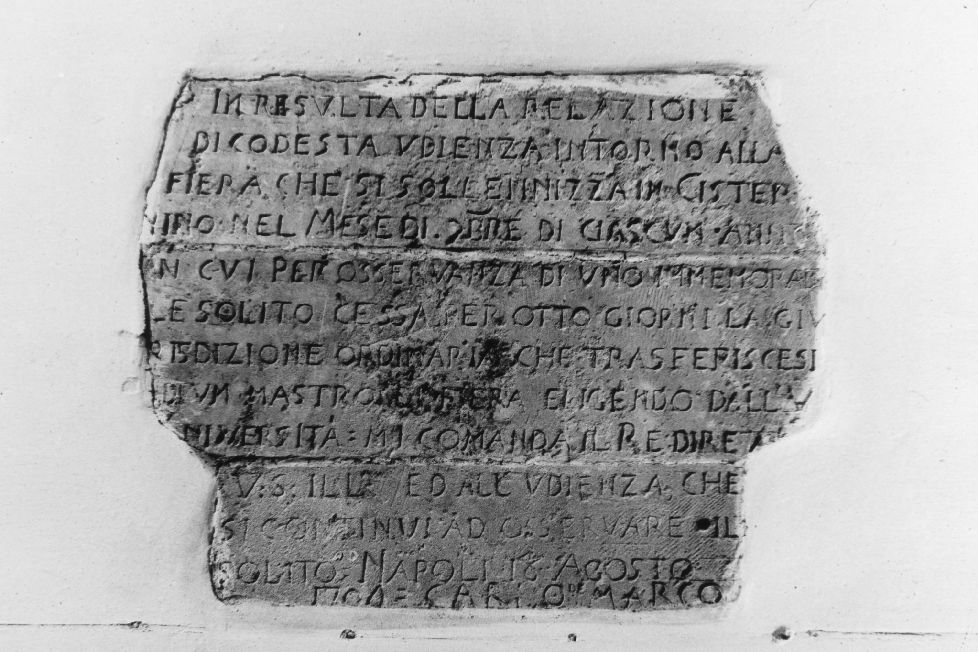 IN RESVLTA DELLA RELAZIONE
DI CODESTA VDIENZA INTORNO ALLA
FIERA CHE SI SOLLENNIZZA IN CISTER
NINO NEL MESE DI 9BRE DI CIASCUN ANNO
IN CVI PER OSSERVANZA DI VNO IMMEMORABI
LE SOLITO CESSA PER OTTO GIORNI LA GIV
RISDIZIONE ORDINARIA CHE TRASFERISCESI
DI VN MASTRO FIERA ELIGENDO DALL'V
NIVERSITÀ: MI COMANDA IL RE DIRE A
V: S: ILLR ED ALL' VDIENZA, CHE
SI CONTINUI AD OSSERVARE IL
SOLITO NAPOLI 18 AGOSTO
CARL O MARCO